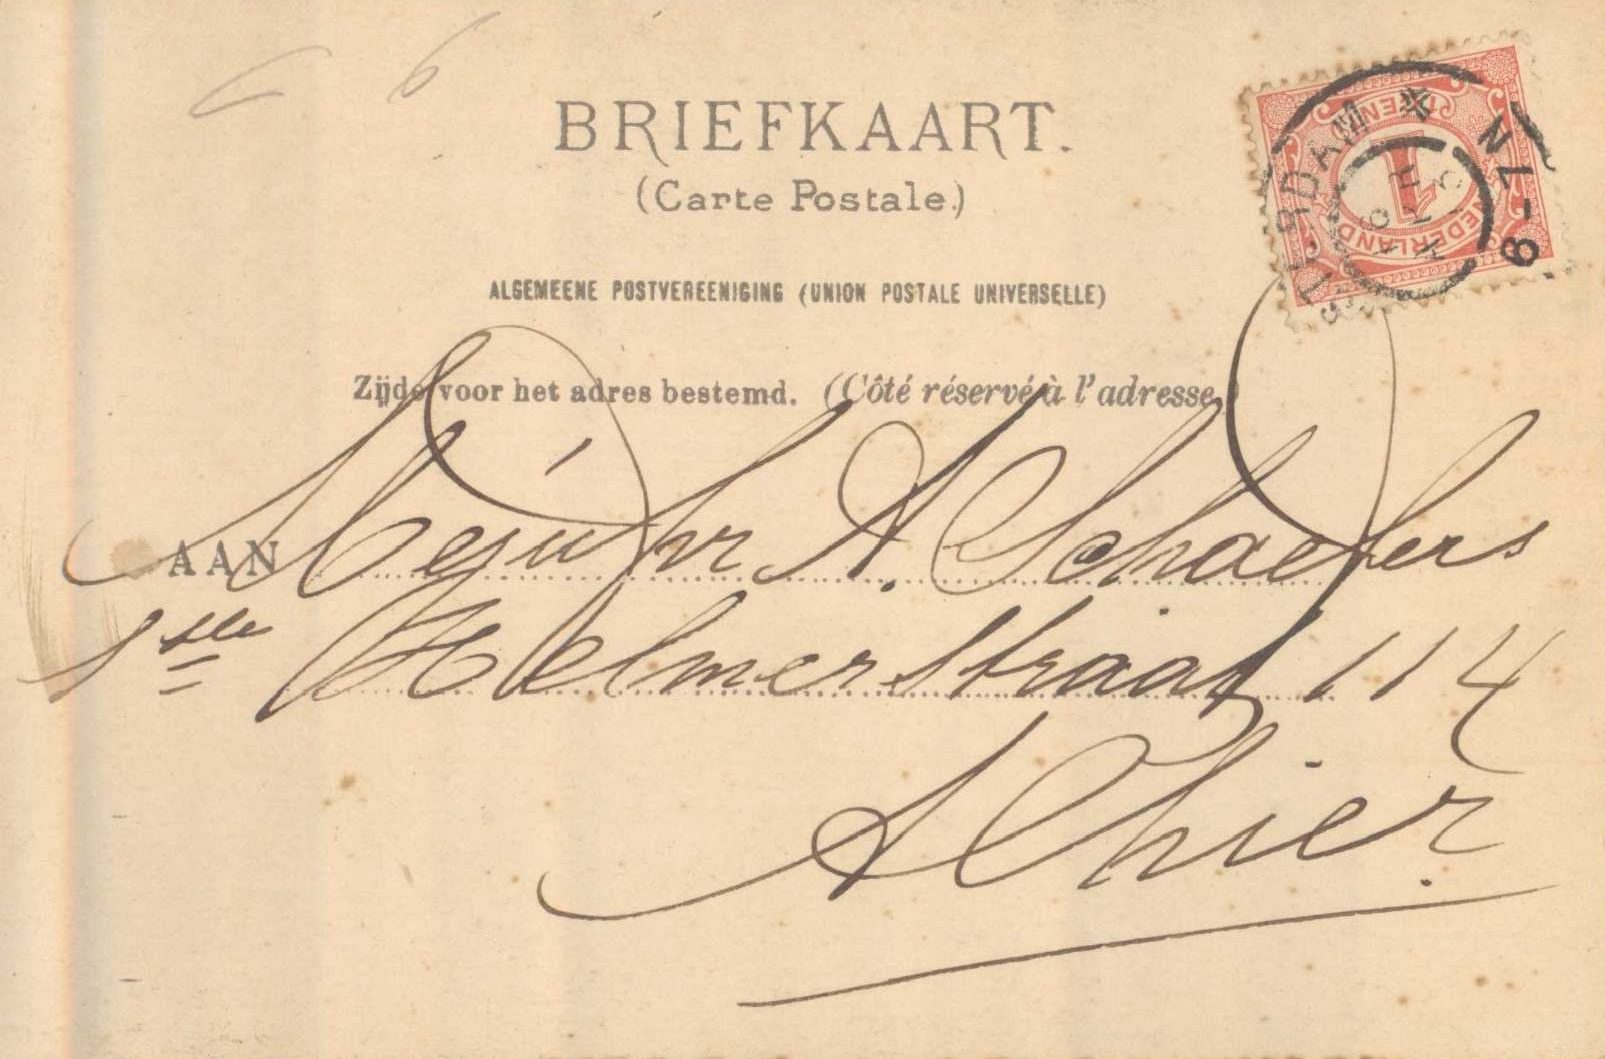 BRIEFKAART.
(Carte Postale.)
ALGEMEENE POSTVEREENIGING (UNION POSTALE UNIVERSELLE)
Zijde voor het adres bestemd. (Côté réservé à l'adresse.)
AAN Mejúhr A. Schaefers
1ste Helmerstraat 114
Alhier.
1
CENT
NEDERLAND
8-9